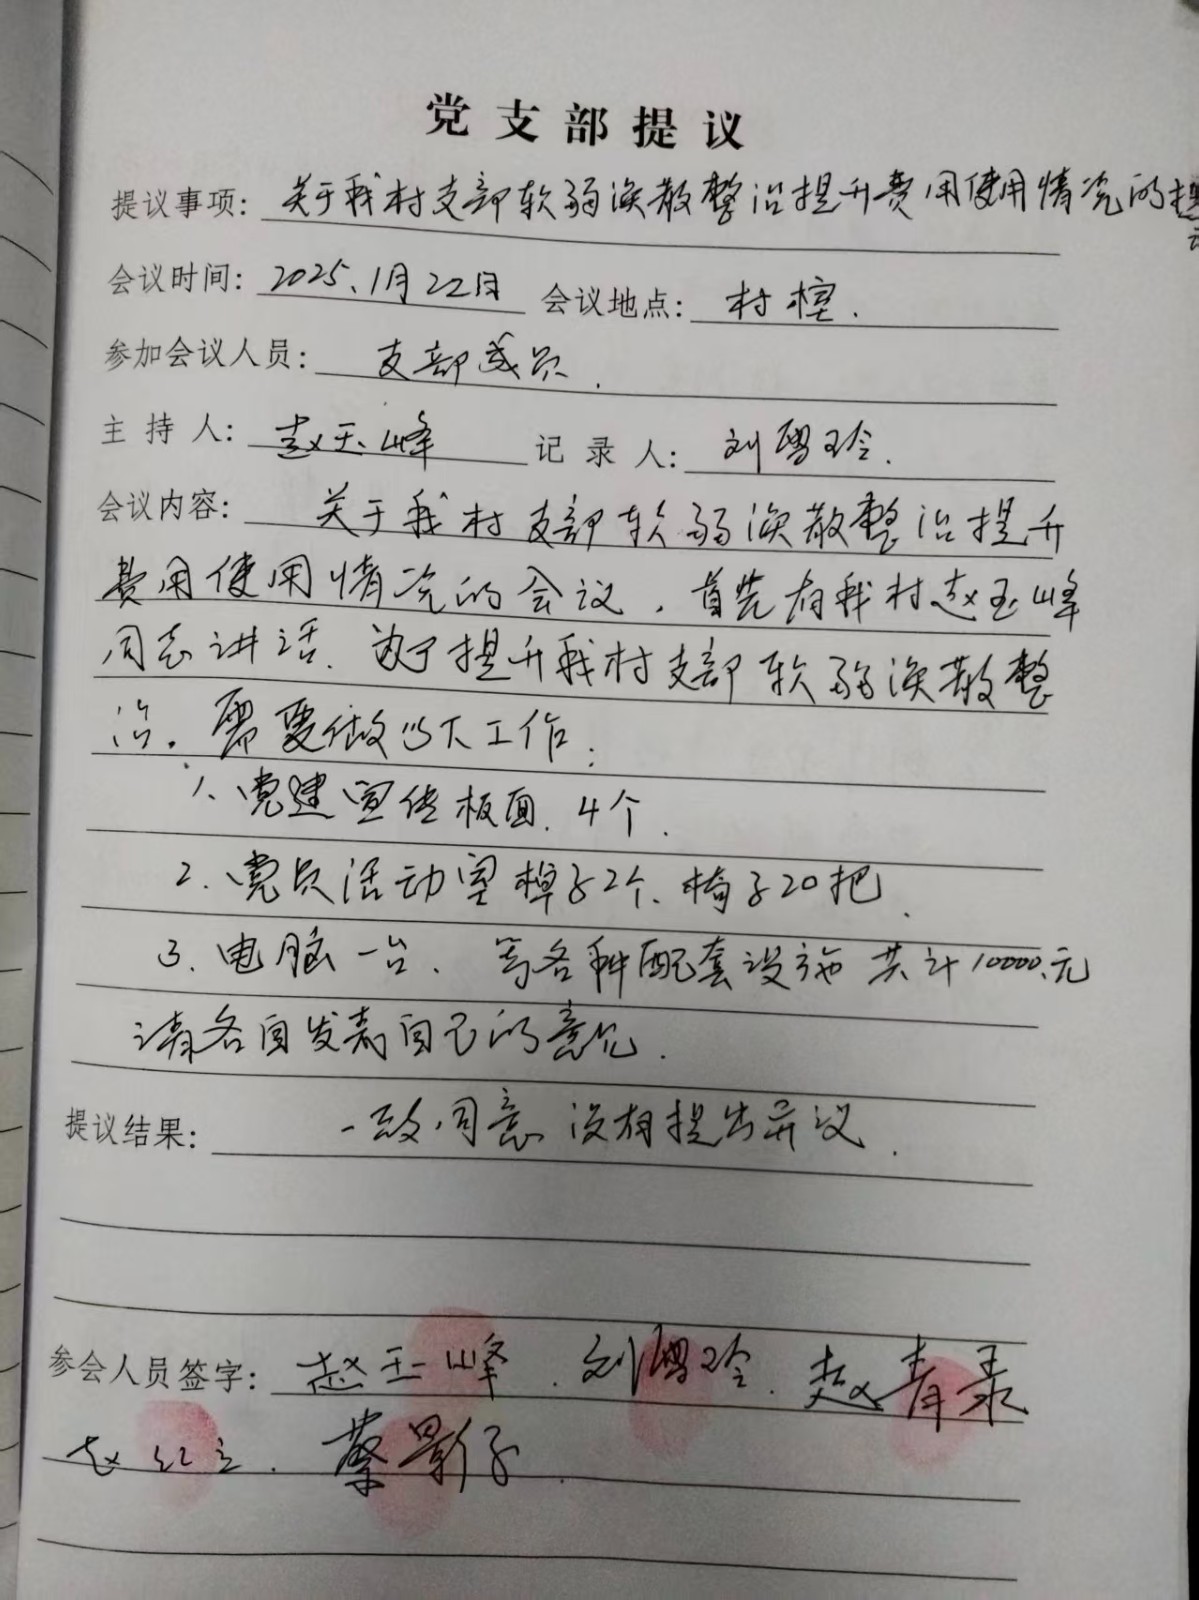 党支部提议
提议事项：关于我村支部软弱涣散整治提升费用使用情况的提
议
会议时间：2025、1月22日 会议地点：村室．
参加会议人员：支部成员．
主持人：赵玉峰 记录人：刘雪玲．
会议内容：关于我村支部软弱涣散整治提升
费用使用情况的会议，首先有我村赵玉峰
同志讲话、为了提升我村支部软弱涣散整
治。需要做以下工作：
1、党建宣传板面、4个．
2．党员活动室桌子2个、椅子20把．
3、电脑一台、等各种配套设施 共计10000.元
请各自发表自己的意见．
提议结果：一致同意 没有提出异议．
参会人员签字：赵玉峰．刘雪玲．赵青录
赵红立．蔡影子．